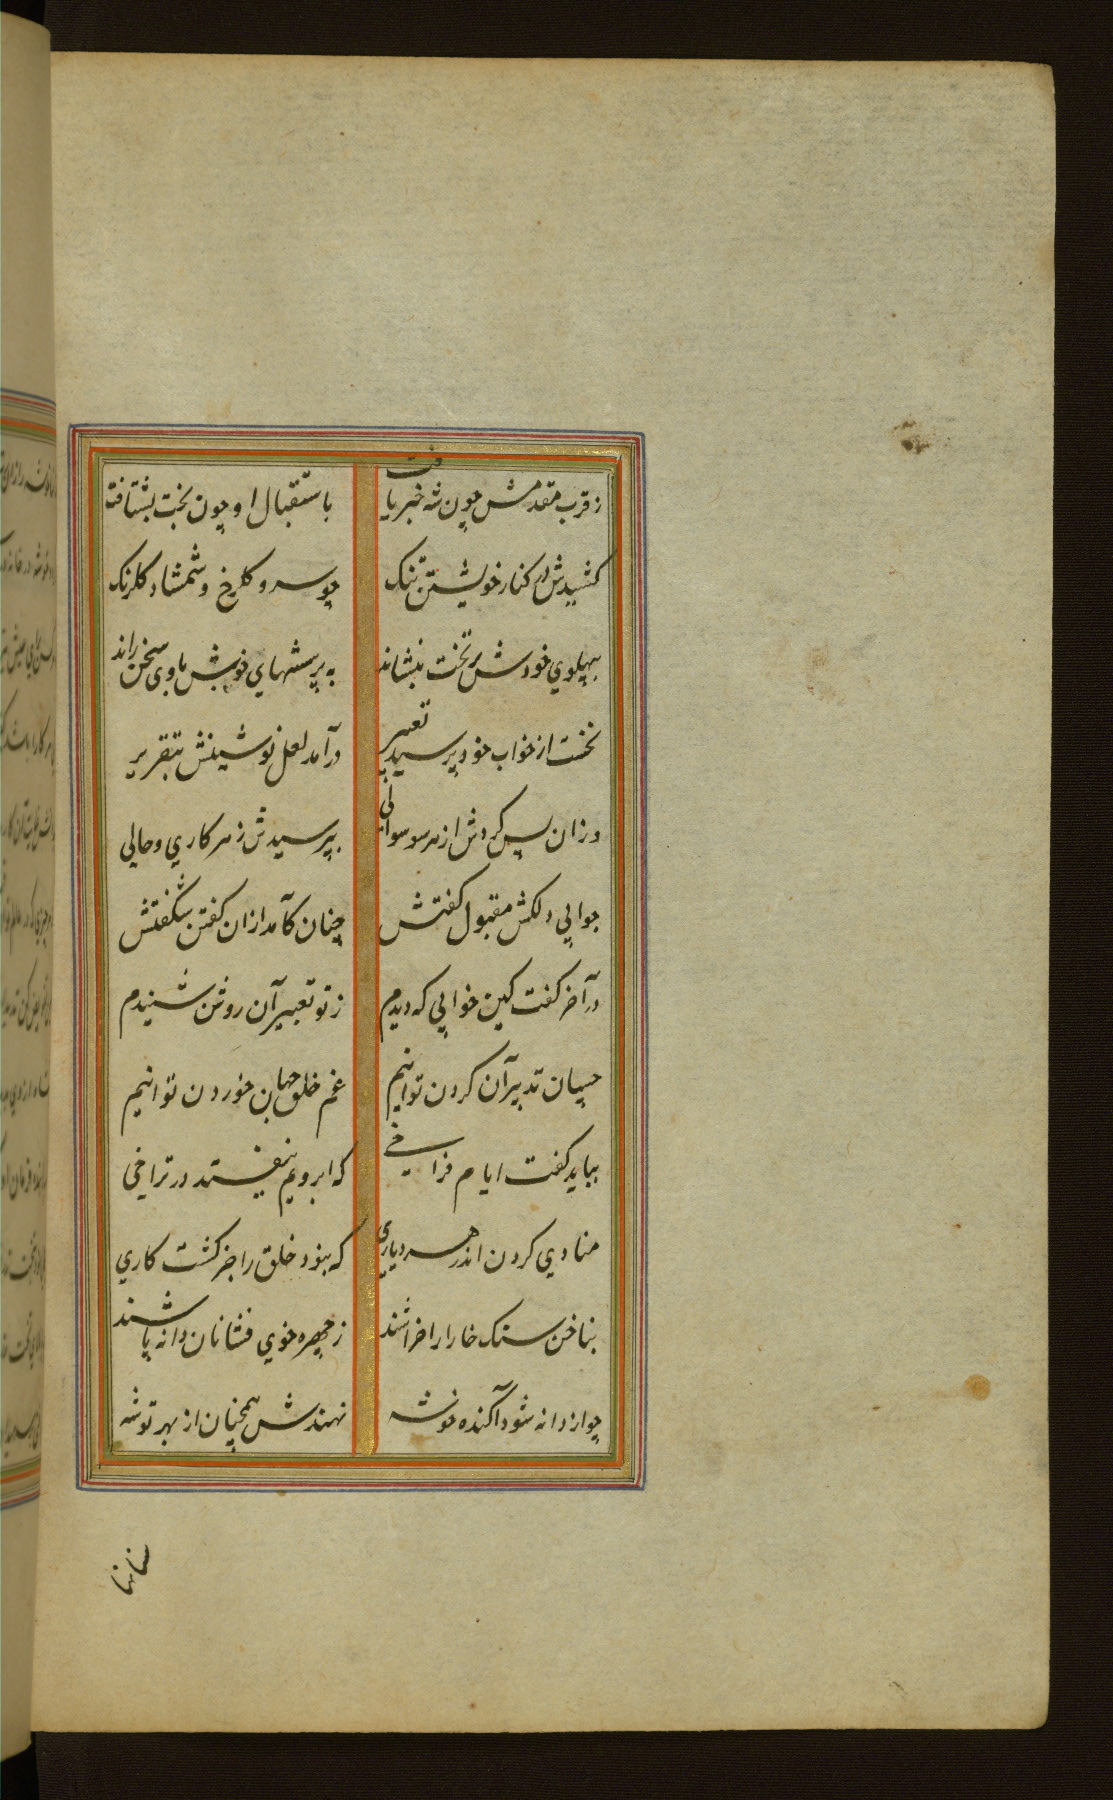 ز قرب مقدمش چون شه خبر یافت
باستقبال او چون بخت بشتافت
کشیدش در کنار خویشتن تنک
چو سرو کلرخ و شمشاد کلرنک
بپهلوي خودش بر تخت بنشاند
به پرسشهاي خوش با وی سخن راند
نخست از خواب خود پرسید تعبیر
درآمد لعل نوشینش بتقریر
وزان پس کردش از هر سو سوالی
بپرسیدش ز هر کاري و حالي
جوابي دلکش مقبول کفتش
چنان کآمد ازان کفتن شکفتش
در آخر کفت کین خوابي که دیدم
ز تو تعبیر آن روشن شنیدم
چسان تدبیر آن کردن توانیم
غم خلق جهان خوردن توانیم
بباید کفت ایام فراخي
که ابر و نم نیفتد در تراخي
منادي کردن اندر هر دیاری
که نبود خلق را جز کشت کاري
بناخن سنک خارا را خراشند
ز چهره خوي فشانان دانه پاشند
چو از دانه شود آکنده خوشه
نهندش همچنان از بهر توشه